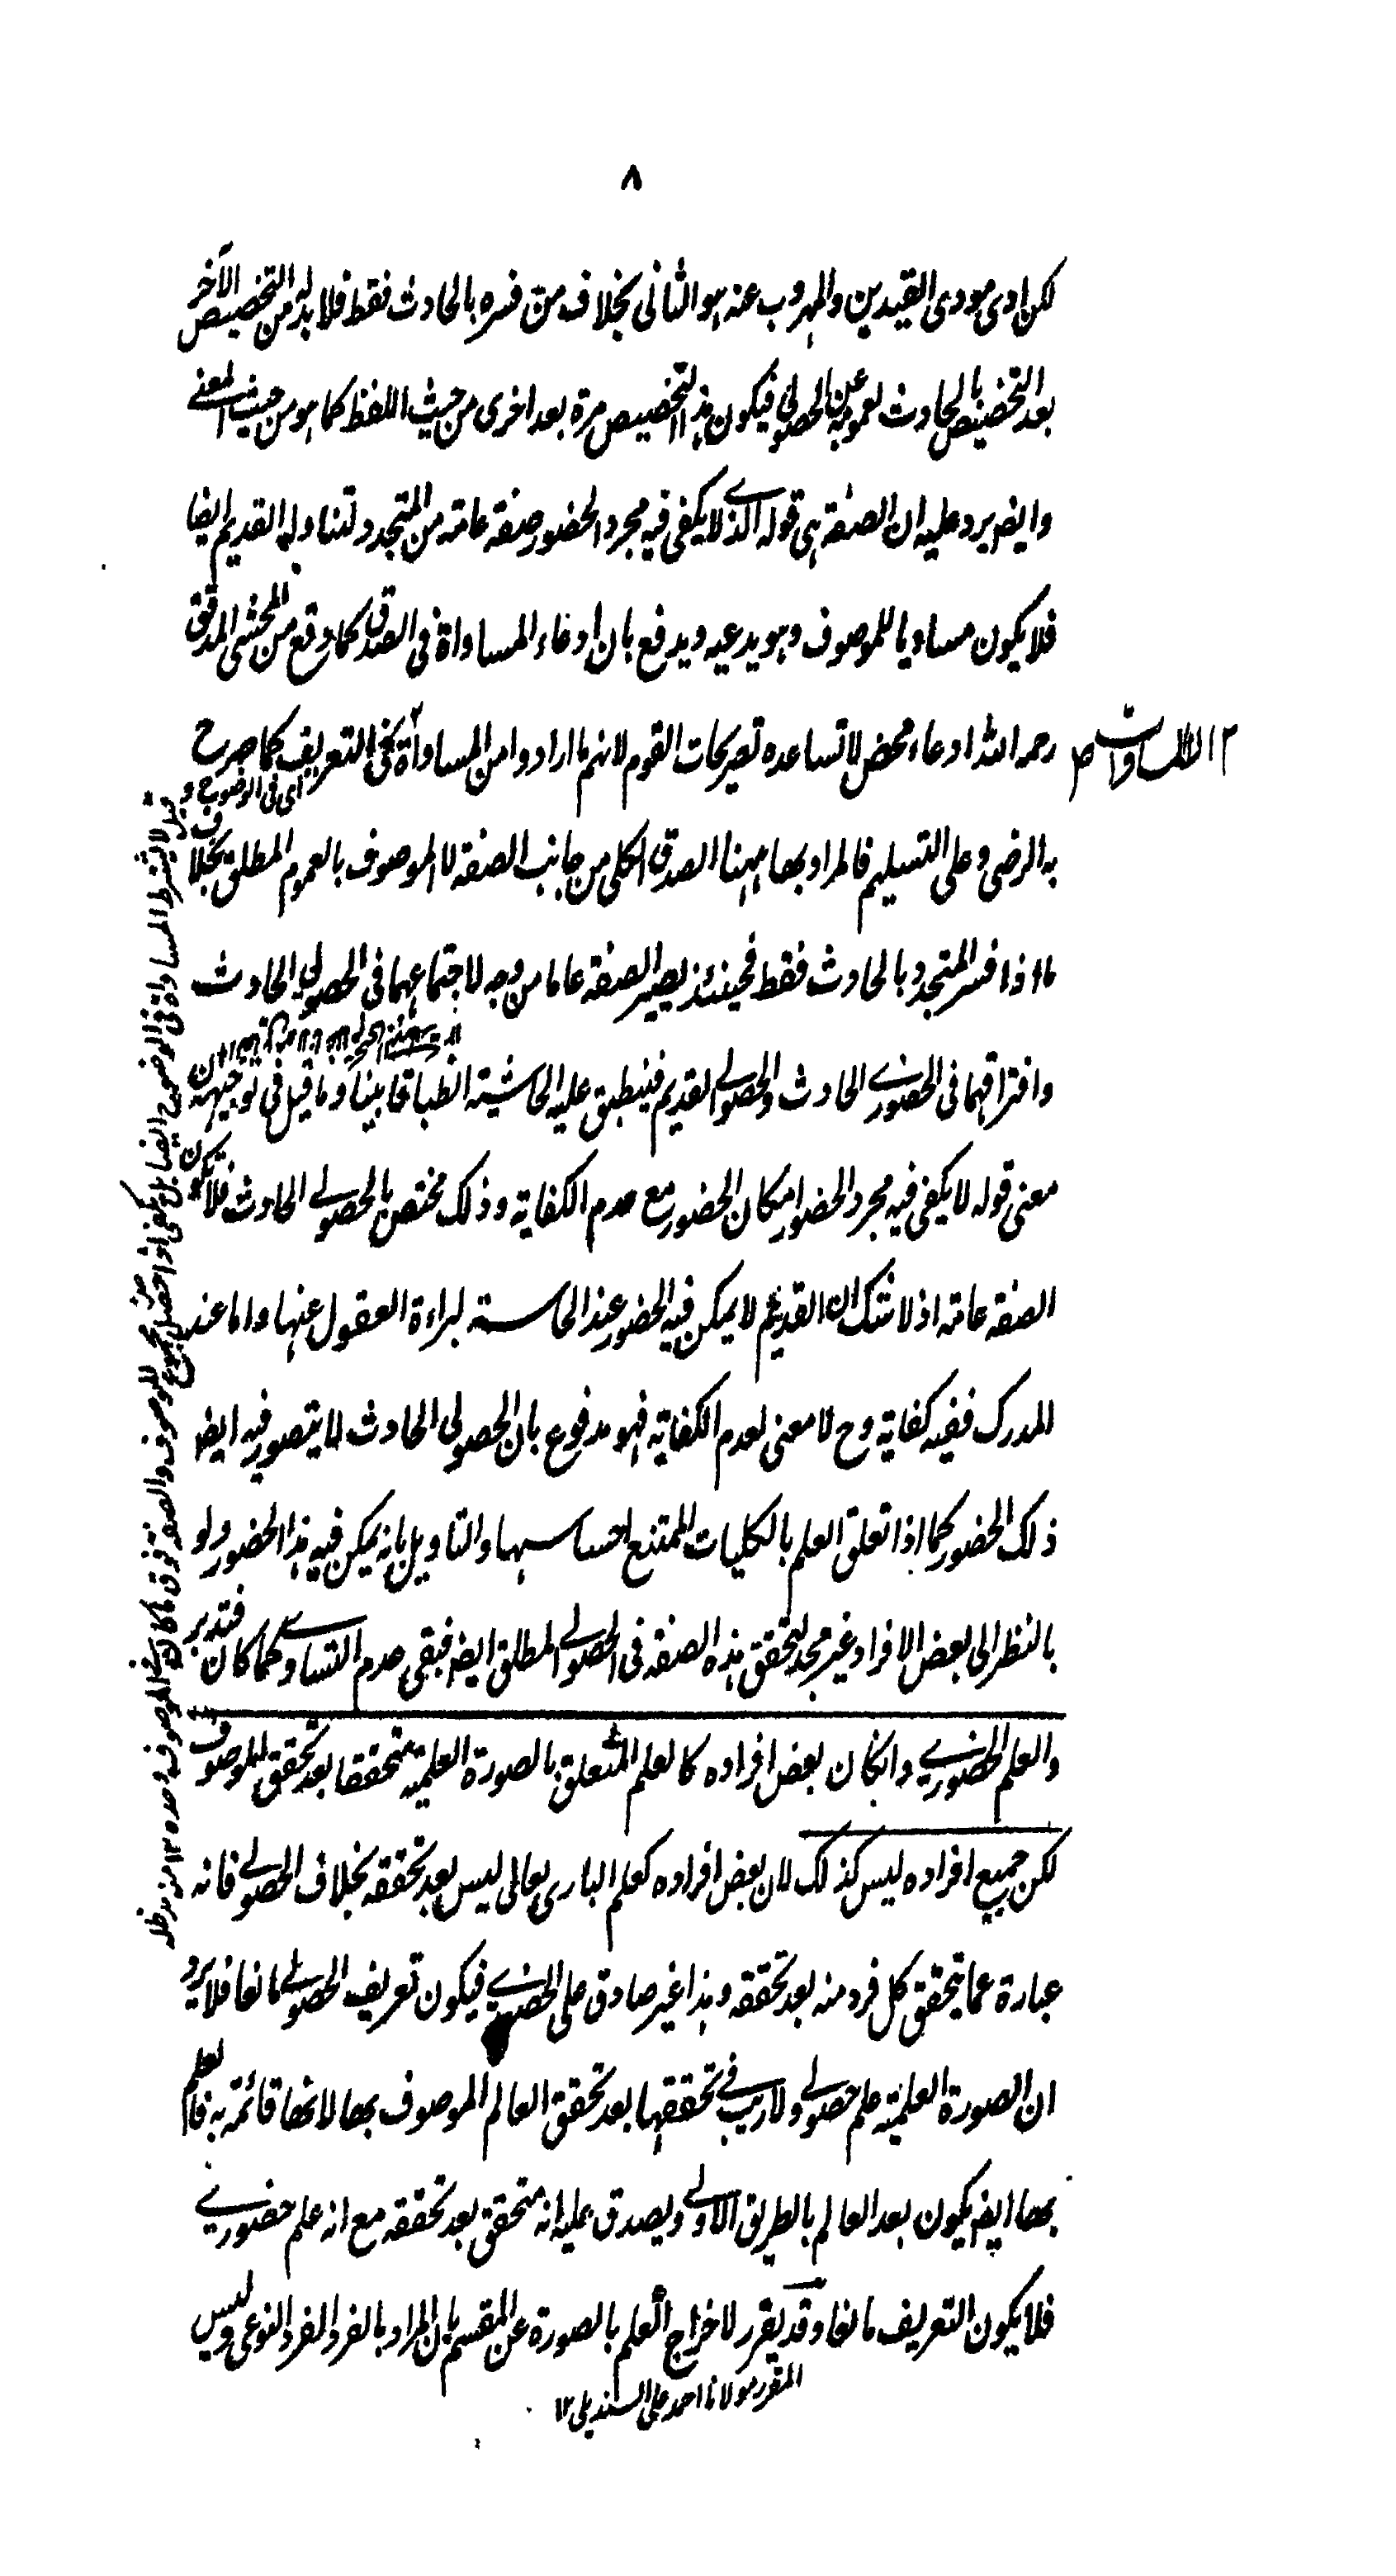 ٨
لكن ادى مودى القيدين والمهروب عنه هو الثانى بخلاف من فسره بالحادث فقط فلا بد له من التخصيص الآخر
بعد التخصيص بالحادث لعمومه عن الحصولى فيكون هذا التخصيص مرة بعد اخرى من حيث اللفظ كما هو من حيث المعنے
وايضا يرد عليه ان الصفة هى قوله الذے لا يكفى فيه مجرد الحضور صفة عامة من المتجدد لتناوله القديم ايضا
فلا يكون مساويا للموصوف وهو يدعيه ويدفع بان ادعاء المساواة فى الصدق كما وقع من المحشى المدقق
رحمه الله ادعاء محض لا تساعده تصريحات القوم لانهم ما ارادوا من المساواة فى التعريف كما صرح
به الرضى وعلى التسليم فالمراد بها ههنا الصدق الكلى من جانب الصفة لا الموصوف بالعموم المطلق بخلاف
ما اذا فسر المتجدد بالحادث فقط فحينئذ يصير الصفة عاما من وجه لاجتماعهما فى الحصولى الحادث
وافتراقهما فى الحضورے الحادث والحصولے القديم فينطبق عليه الحاشية انطباقا بينا وما قيل فى توجيهه ان
معنى قوله لا يكفى فيه مجرد الحضور امكان الحضور مع عدم الكفاية وذلك مختص بالحصولے الحادث فلا يكون
الصفة عامة اذ لا شك ان القديم لا يمكن فيه الحضور عند الحاسة لبراءة العقول عنها واما عند
المدرك ففيه كفاية وح لا معنى لعدم الكفاية فهو مدفوع بان الحصولى الحادث لا يتصور فيه ايضا
ذلك الحضور كما اذا تعلق العلم بالكليات الممتنع احساسها والتاويل بانه يمكن فيه هذا الحضور ولو
بالنظر الى بعض الافراد غير مجد لتحقق هذه الصفة فى الحصولے المطلق ايضا فبقى عدم التساوے كما كان فتدبر
والعلم الحضورے وان كان بعض افراده كالعلم المتعلق بالصورة العلمية متحققا بعد تحقق الموصوف
لكن جميع افراده ليس كذلك لان بعض افراده كعلم البارى تعالى ليس بعد تحققه بخلاف الحصولے فانه
عبارة عما يتحقق كل فرد منه بعد تحققه وهذا غير صادق على الحضورے فيكون تعريف الحصولے مانعا فلا يرد
ان الصورة العلمية علم حصولے ولا ريب فے تحققها بعد تحقق العالم الموصوف بها لانها قائمة به فالعلم
بها ايضا يكون بعد العالم بالطريق الاولے ويصدق عليه انه متحقق بعد تحققه مع انه علم حضورے
فلا يكون التعريف مانعا وقد يقرر لاخراج العلم بالصورة عن المقسم بان المراد بالفرد الفرد النوعى وليس
المقرر مولانا احمد على السنديلى ١٢